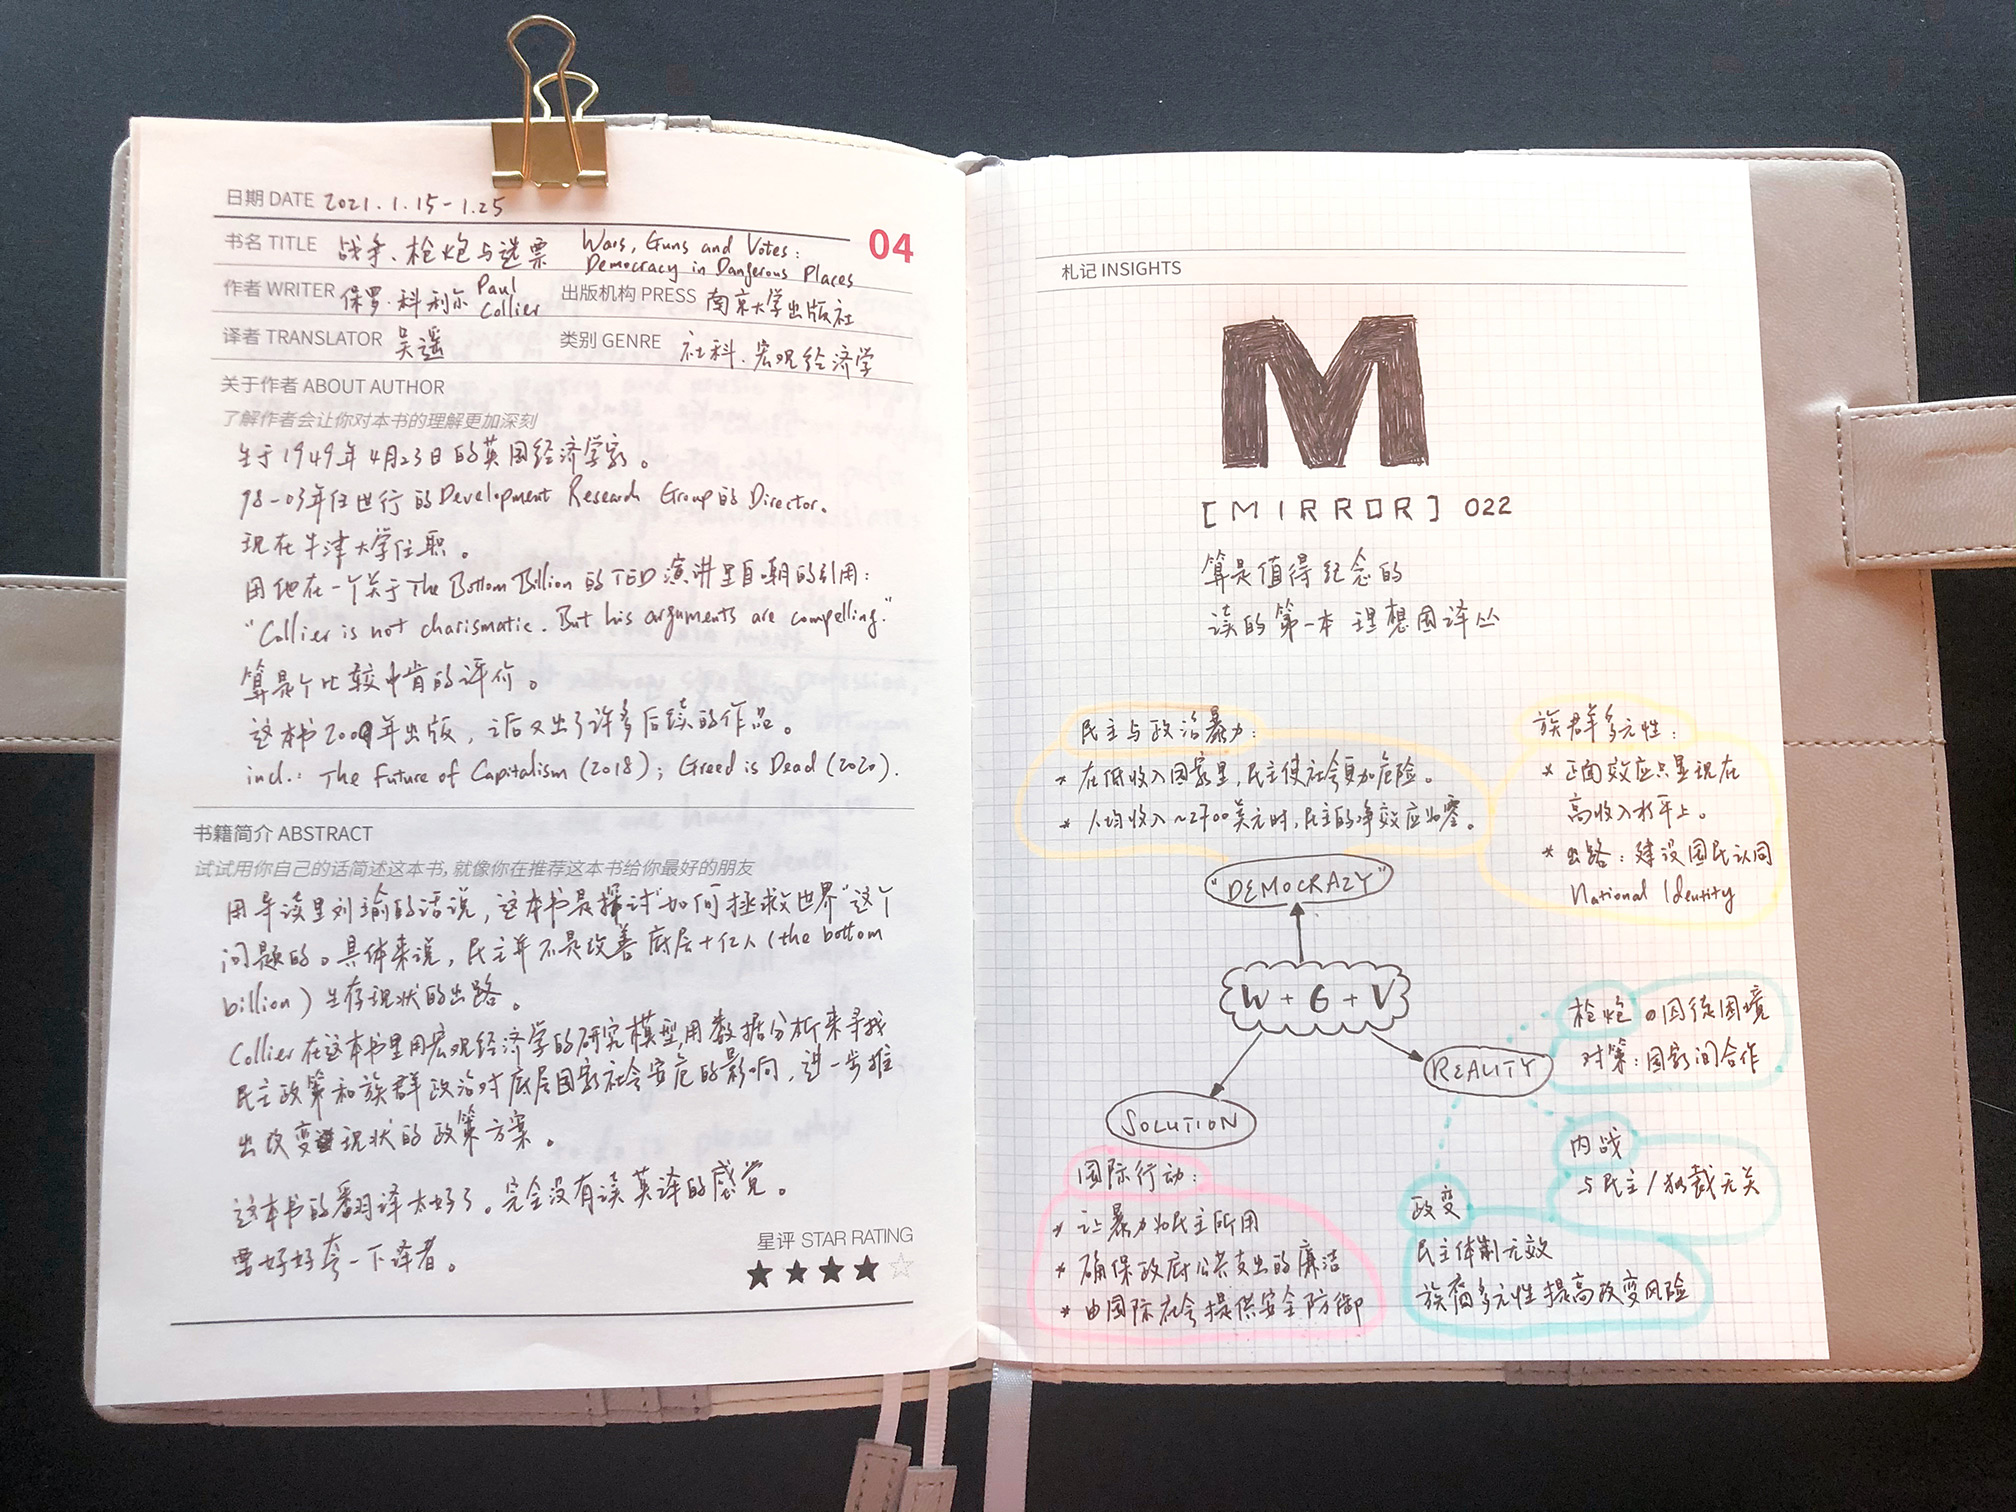 日期 DATE 2021.1.15-1.25
04
书名 TITLE 战争、枪炮与选票 Wars, Guns and Votes:
Democracy in Dangerous Places
作者 WRITER 保罗·科利尔 Paul Collier 出版机构 PRESS 南京大学出版社
译者 TRANSLATOR 吴遥 类别 GENRE 社科、宏观经济学
关于作者 ABOUT AUTHOR
了解作者会让你对本书的理解更加深刻
生于1949年4月23日的英国经济学家。
98-03年任世行的Development Research Group的Director.
现在牛津大学任职。
用他在一个关于The Bottom Billion的TED演讲里自嘲的引用:
"Collier is not charismatic. But his arguments are compelling."
算是个比较中肯的评价。
这本书2009年出版，之后又出了许多后续的作品。
incl.: The Future of Capitalism (2018); Greed is Dead (2020).
书籍简介 ABSTRACT
试试用你自己的话简述这本书, 就像你在推荐这本书给你最好的朋友
用导读里刘瑜的话说，这本书是探讨"如何拯救世界"这个
问题的。具体来说，民主并不是改善底层十亿人(the bottom
billion)生存现状的出路。
Collier在这本书里用宏观经济学的研究模型,用数据分析来寻找
民主政策和族群政治对底层国家社会安危的影响，进一步推
出改变现状的政策方案。
这本书的翻译太好了。完全没有读英译的感觉。
要好好夸一下译者。
星评 STAR RATING
札记 INSIGHTS
M
[MIRROR] 022
算是值得纪念的
读的第一本理想国译丛
民主与政治暴力:
* 在低收入国家里,民主使社会更加危险。
* 人均收入~2700美元时,民主的净效应为零。
族群多元性:
* 正面效应只显现在
高收入水平上。
* 出路: 建设国民认同
National Identity
"DEMOCRAZY"
W+G+V
REALITY
SOLUTION
枪炮 囚徒困境
对策: 国家间合作
内战
与民主/独裁无关
政变
民主体制无效
族裔多元性提高政变风险
国际行动:
* 让暴力为民主所用
* 确保政府公共支出的廉洁
* 由国际社会提供安全防御